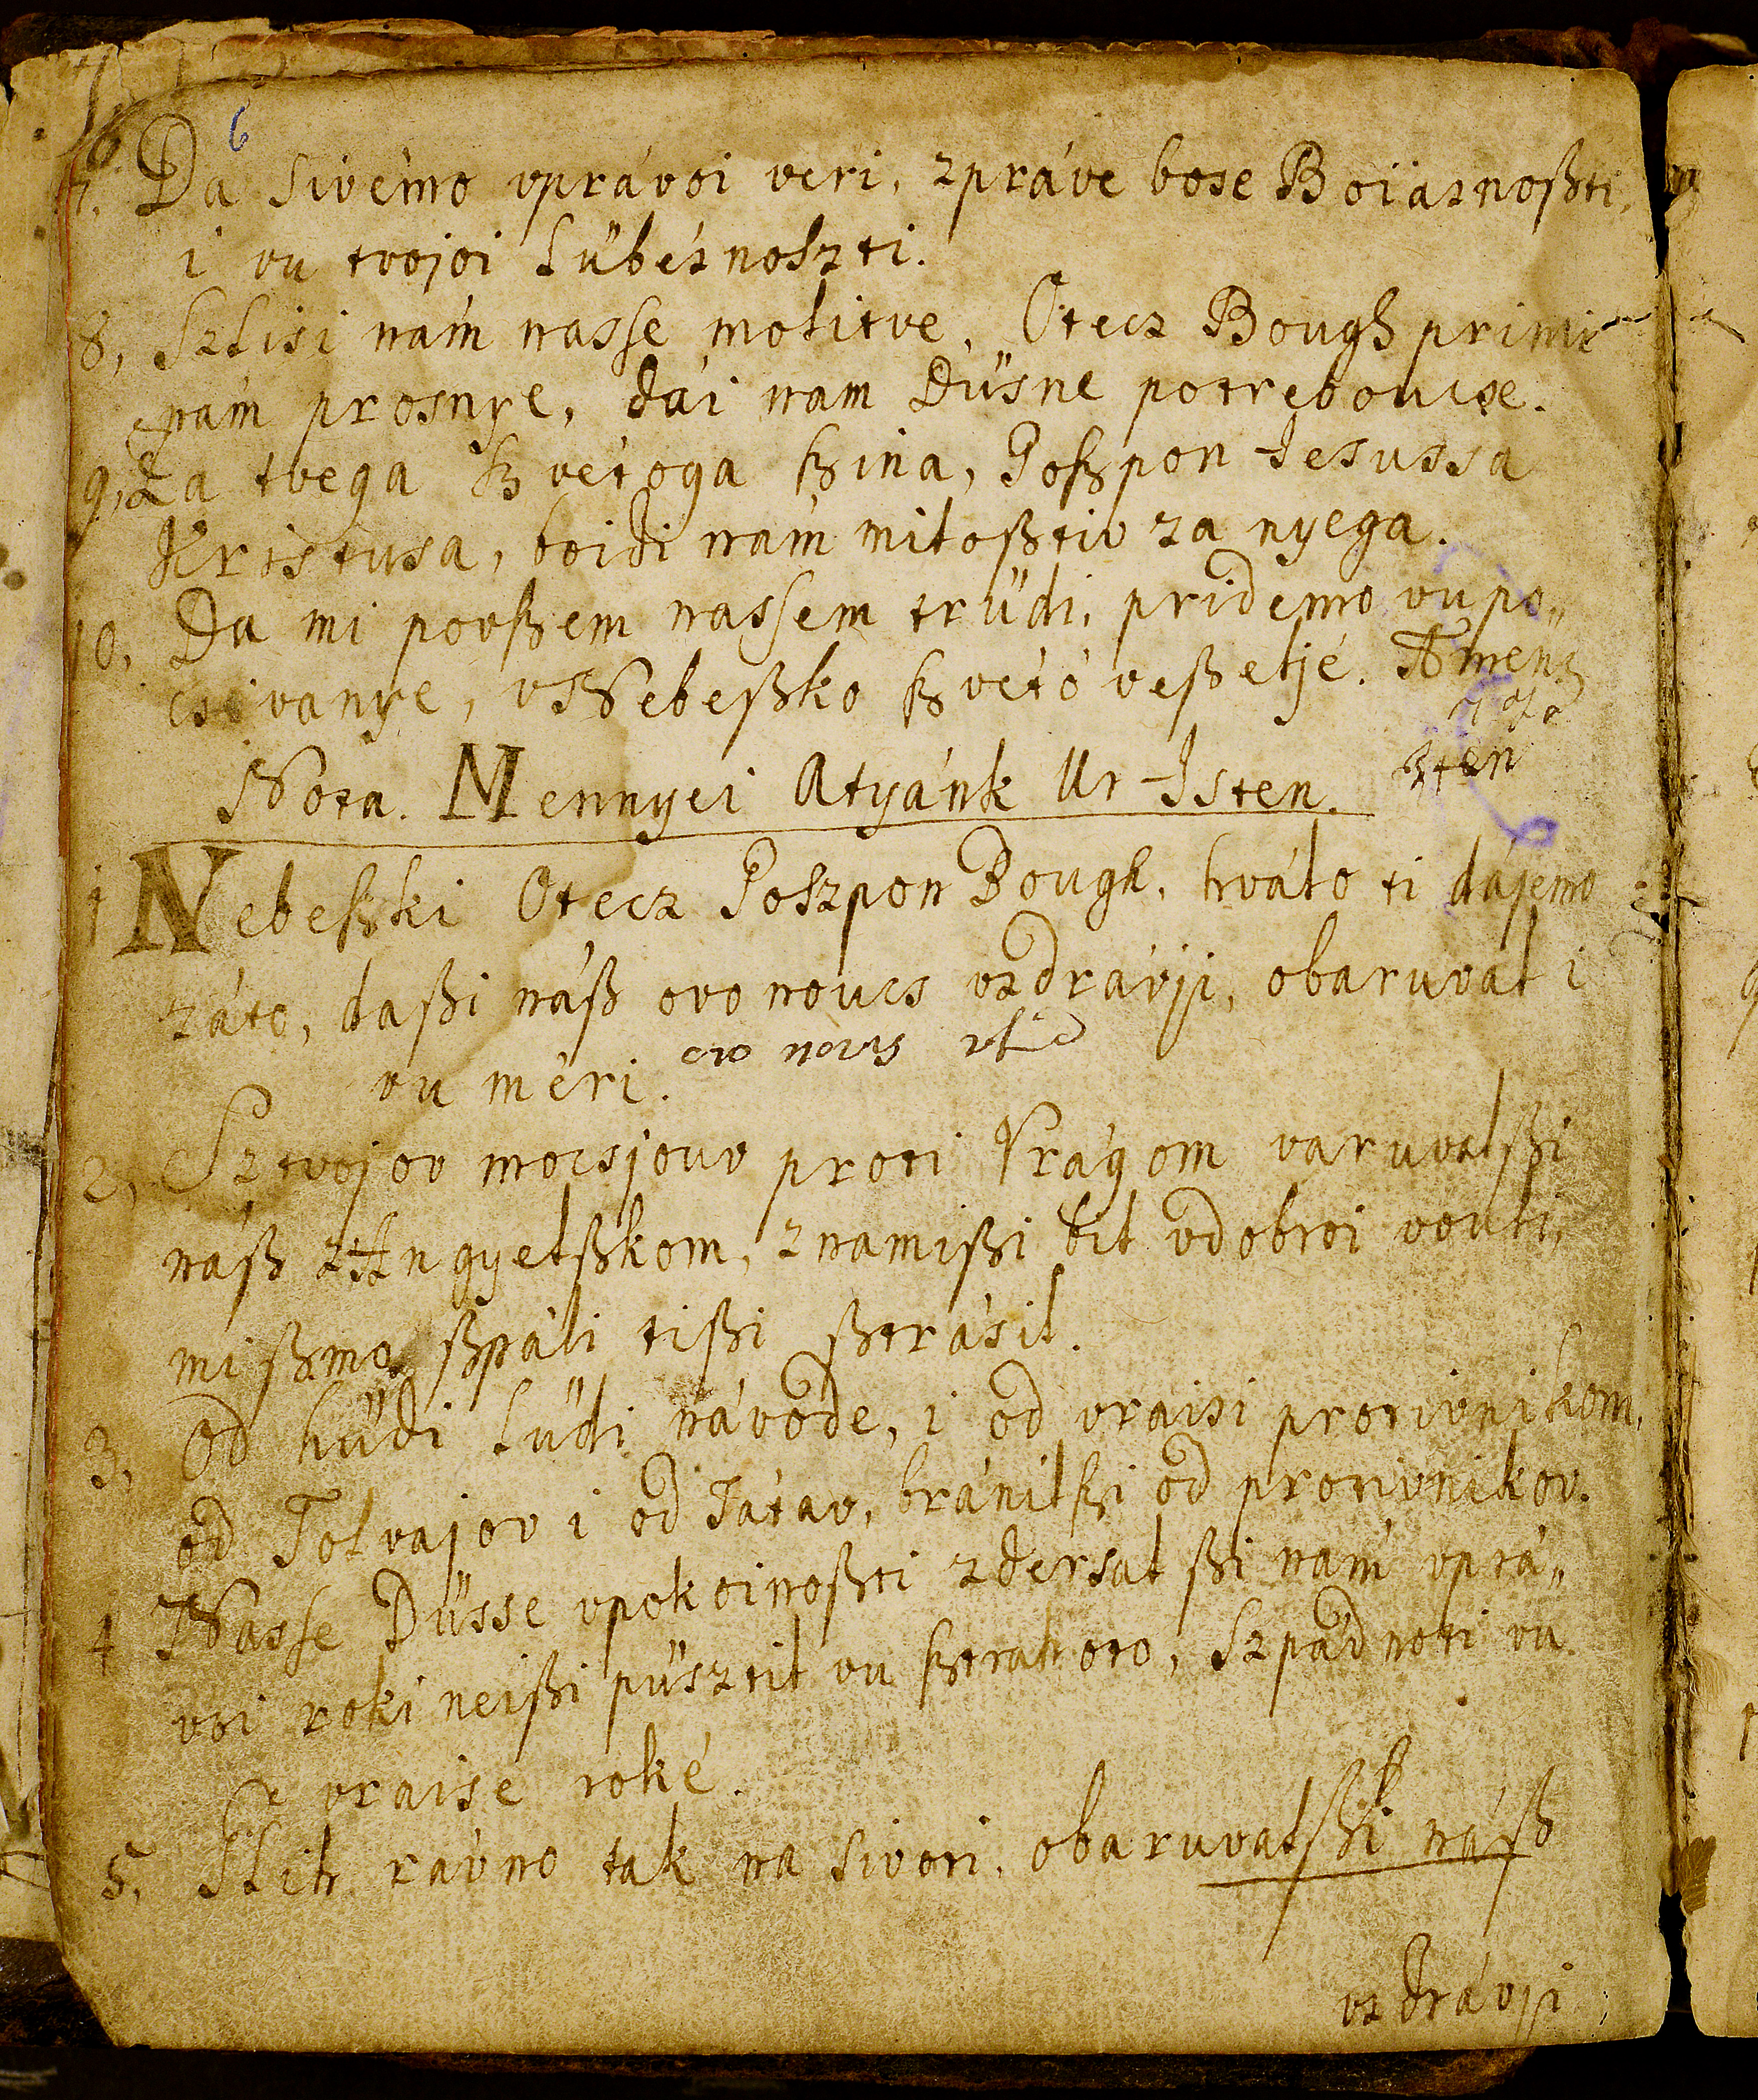 6
7. Da sivémo vprávoi veri, zpráve bose Boiaznoßti,
i vu tvojoi lübéznoszti.
8, Szlisi nám nasse molitve, Otecz Bough primi
nám prosnye, dái nam Düsne potreboucse.
9, Za tvega ßvétoga ßina, Goßpon Jesussa
Kristusa, boidi nám miloßtiv za nyega.
10, Da mi povßem nassem trüdi, pridemo vupo„
csivanye, vNebeßko ßvétó veßeljé. Amen
Nota. Mennyei Atyánk Ur Isten.
1 Nebeßki Otecz Goszpon Bough, hválo ti dájemo
záto, daßi náß ovo noucs vzdrávji, obaruvál i
vu méri.
2, Sztvojov mocsjouv proti Vrágom varuvalßi
náß zAngyelßkom, znamißi bil vdobroi vouli,
mi ßmo ßpáli tißi ßtrásil.
3, Od hüdi lüdi návode, i od vraisi protivnikom,
od Tolvajov i od Tátav, bránilßi od protivnikov.
4 Nasse Düsse vpokoinoßti zdersal ßi nám vprá„
voi roki neißi püsztil vu ßtrahoto, Szpádnoti vu
vraise roké.
5, Glih rávno tak na sivoti, obaruvalßi náß
vzdrávji